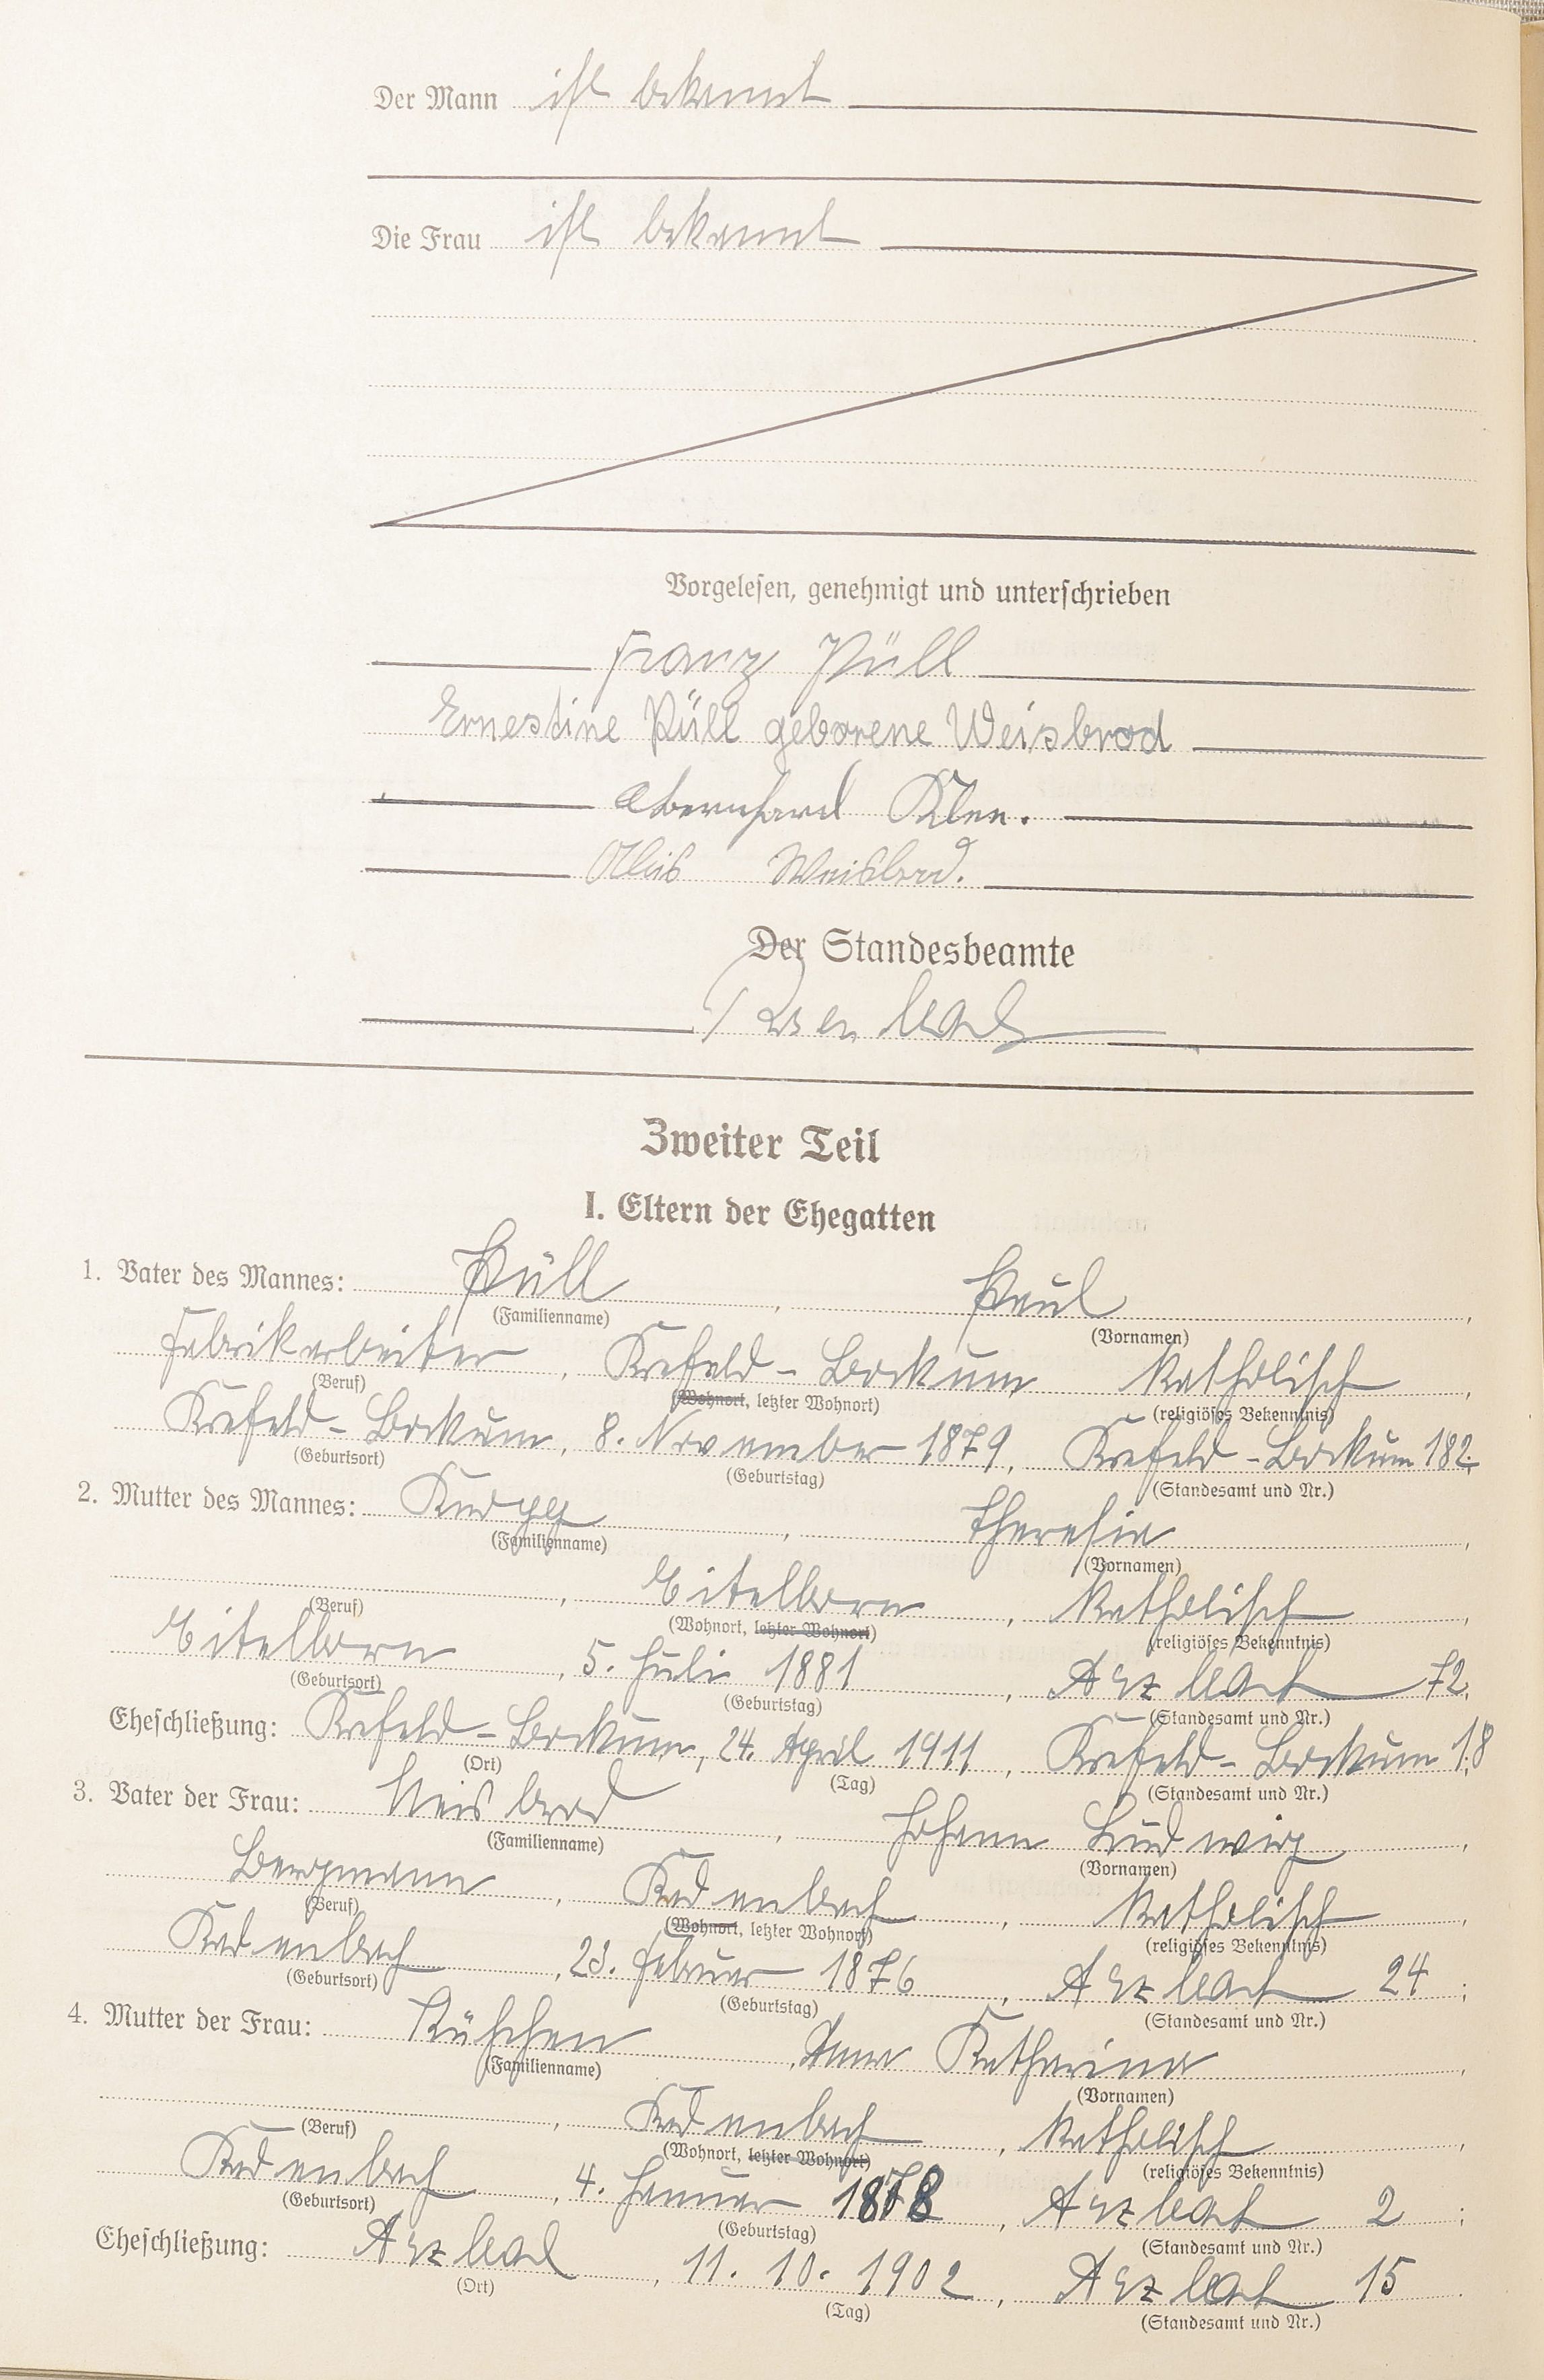 Der Mann ist bekannt
Die Frau ist bekannt
Vorgelesen, genehmigt und unterschrieben
Franz Püll
Ernestine Püll geborene Weisbrod
Bernhard Klee.
Alois Weisbrod.
Der Standesbeamte
Zweiter Teil
I. Eltern der Ehegatten
1. Vater des Mannes: Püll, Paul,
(Familienname) (Vornamen)
Fabrikarbeiter, Krefeld-Bockum katholisch,
(Beruf) (Wohnort, letzter Wohnort) (religiöses Bekenntnis)
Krefeld-Bockum, 8. November 1879, Krefeld-Bockum 182;
(Geburtsort) (Geburtstag) (Standesamt und Nr.)
2. Mutter des Mannes: Knopp, Theresia,
(Familienname) (Vornamen)
, Eitelborn, katholisch,
(Beruf) (Wohnort, letzter Wohnort) (religiöses Bekenntnis)
Eitelborn, 5. Juli 1881, Arzbach 72,
(Geburtsort) (Geburtstag) (Standesamt und Nr.)
Eheschließung: Krefeld-Bockum, 24. April 1911, Krefeld-Bockum 18;
(Ort) (Tag) (Standesamt und Nr.)
3. Vater der Frau: Weisbrod, Johann Ludwig,
(Familienname) (Vornamen)
Bergmann, Kadenbach, katholisch,
(Beruf) (Wohnort, letzter Wohnort) (religiöses Bekenntnis)
Kadenbach, 23. Februar 1876, Arzbach 24;
(Geburtsort) (Geburtstag) (Standesamt und Nr.)
4. Mutter der Frau: Kühchen, Anna Katharina,
(Familienname) (Vornamen)
, Kadenbach, katholisch,
(Beruf) (Wohnort, letzter Wohnort) (religiöses Bekenntnis)
Kadenbach, 4. Januar 1878, Arzbach 2;
(Geburtsort) (Geburtstag) (Standesamt und Nr.)
Eheschließung: Arzbach, 11. 10. 1902, Arzbach 15.
(Ort) (Tag) (Standesamt und Nr.)